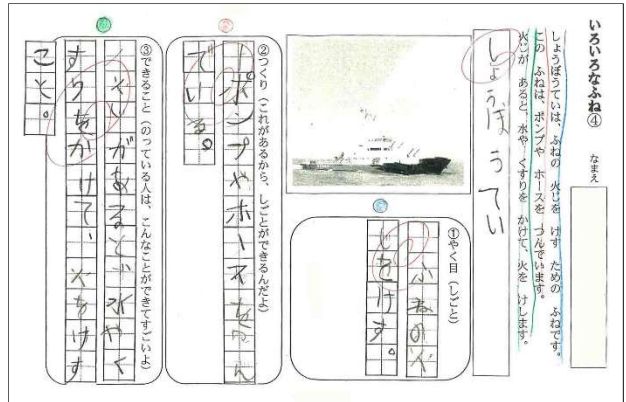 いろいろなふね④
なまえ
しょうぼうていは、ふねの 火じを けす ための ふねです。
この ふねは、ポンプや ホースを つんでいます。
火じが あると、水や くすりを かけて、火を けします。
しょうぼうてい
①やく目（しごと）
ふねの火
じをけす。
②つくり（これがあるから、しごとができるんだよ）
ポンプやホースをつん
でいる。
③できること（のっている人は、こんなことができてすごいよ）
火じがあると、水やく
すりをかけて、火をけす
こと。